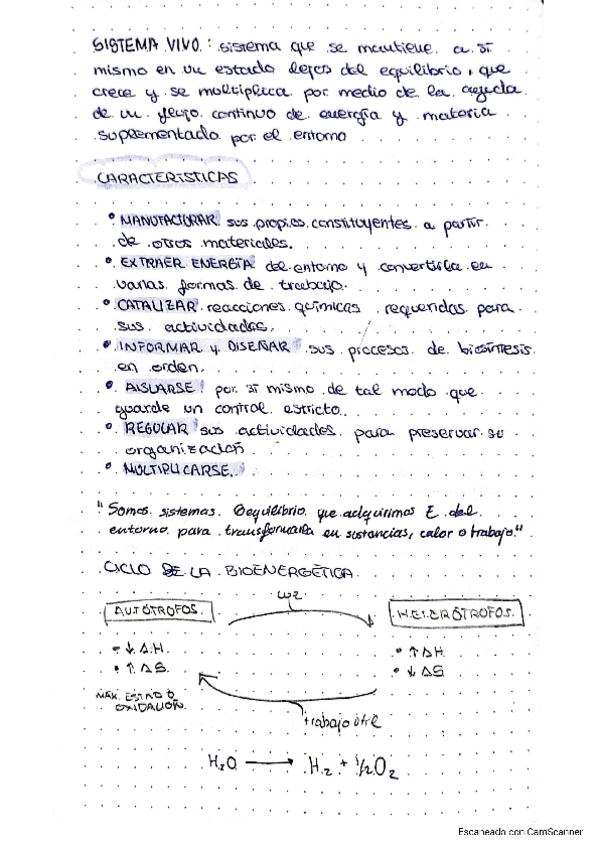 SISTEMA VIVO: sistema que se mantiene a sí
mismo en un estado lejos del equilibrio, que
crece y se multiplica por medio de la ayuda
de un flujo continuo de energía y materia
suplementada por el entorno
CARACTERISTICAS
• MANUFACTURAR sus propios constituyentes a partir
de otros materiales.
• EXTRAER ENERGÍA del entorno y convertirla en
varias formas de trabajo.
• CATALIZAR reacciones químicas requeridas para
sus actividades.
• INFORMAR y DISEÑAR sus procesos de biosíntesis
en orden.
• AISLARSE por sí mismo de tal modo que
guarde un control estricto.
• REGULAR sus actividades para preservar su
organización
• MULTIPLICARSE.
"Somos sistemas equilibrio que adquirimos E del
entorno para transformarla en sustancias, calor o trabajo."
CICLO DE LA BIOENERGÉTICA
AUTÓTROFOS.
HETERÓTROFOS.
• ↓ ΔH.
• ↑ ΔS.
• ↑ ΔH
• ↓ ΔS
MÁX. ESTADO
OXIDACIÓN.
trabajo útil
H₂O → H₂ + 1/2 O₂
Escaneado con CamScanner